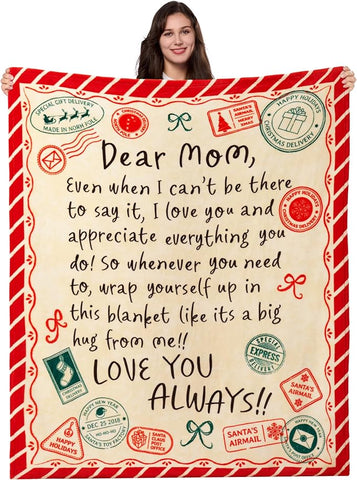 SPECIAL GIFT DELIVERY
MADE IN NORH POLE
SANTA'S AIRMAIL
MERRY XMAS
HAPPY HOLIDAYS
CHRISTMAS DELIVERY
Dear Mom,
Even when I can't be there
to say it, I love you and
appreciate everything you
do! So whenever you need
to, wrap yourself up in
this blanket like its a big
hug from me!!
LOVE YOU
ALWAYS!!
HAPPY HOLIDAYS
CHRISTMAS DELIVERY
SPECIAL
EXPRESS
DELIVERY
HAPPY NEW YEAR
DEC 25 2018
HO-HO-HO
SANTA'S TOY FACTORY
SANTA'S
AIRMAIL
HAPPY
HOLIDAYS
SANTA
CLAUS
POST
OFFICE
SANTA'S
AIRMAIL